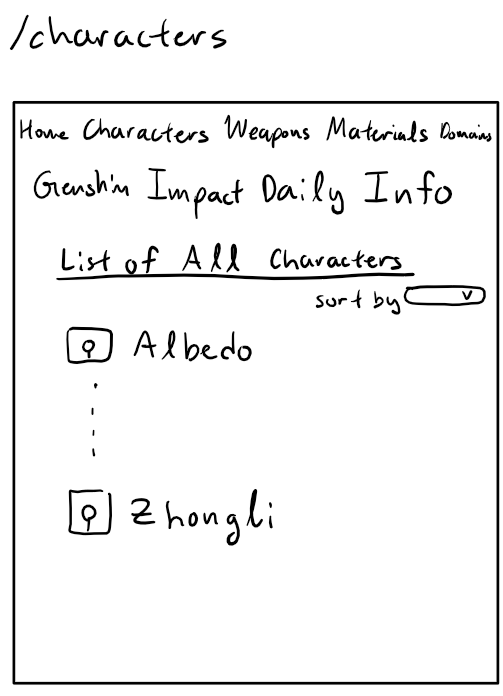 /characters
Home Characters Weapons Materials Domains
Genshin Impact Daily Info
List of All Characters
sort by
Albedo
Zhongli